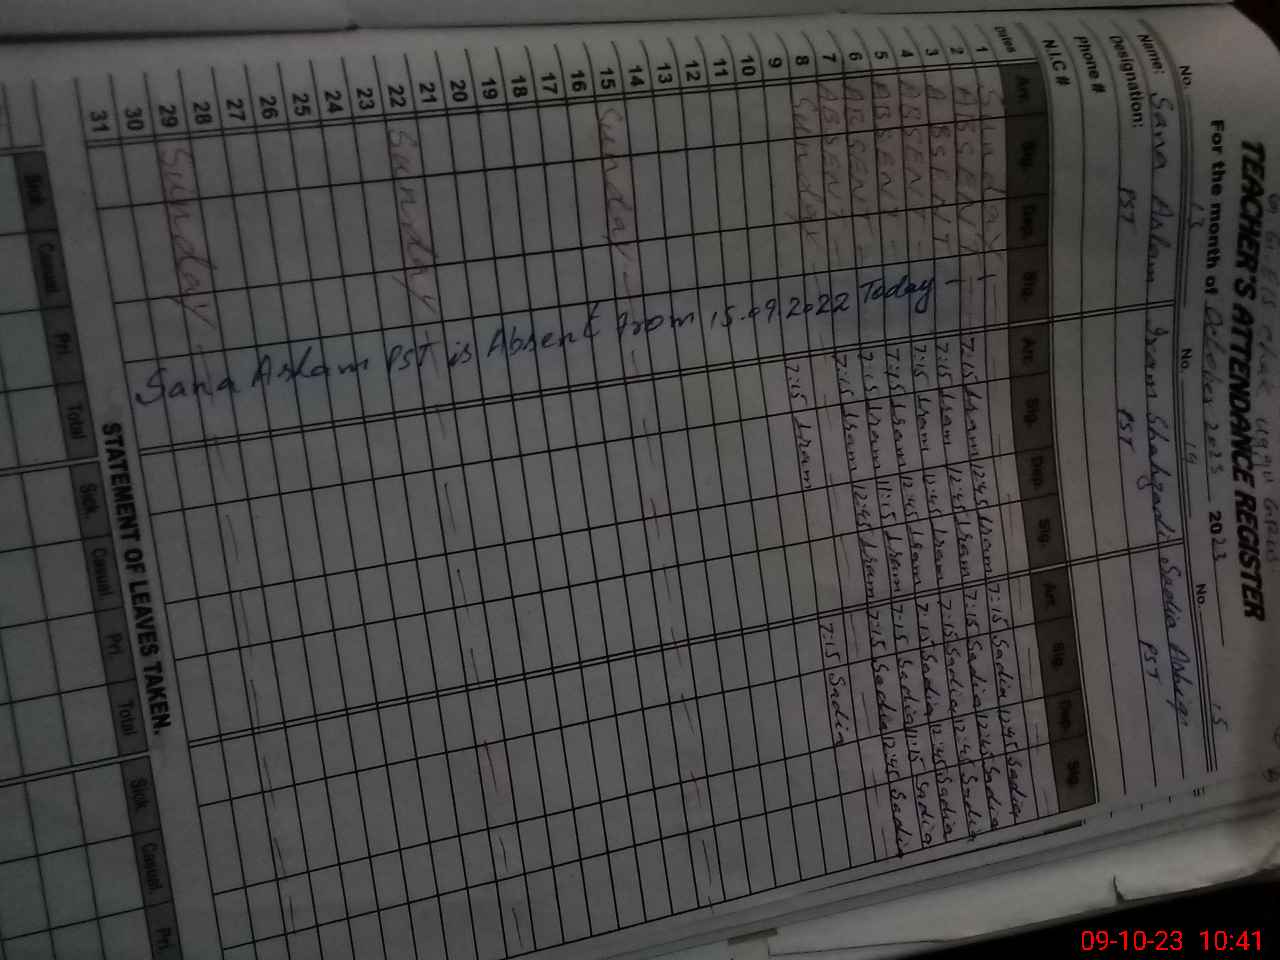 TEACHER'S ATTENDANCE REGISTER
For the month of October 2023 2023
No. 13 No. 14 No. 15
Name: Sana Aslam Iram Shahzadi Sadia Ashiq
Designation: PST PST PST
Phone #
N.I.C #
Dates Arr. Sig. Dep. Sig. Arr. Sig. Dep. Sig. Arr. Sig. Dep. Sig.
1 Sunday
2 ABSENT 7:15 Iram 12:45 Iram 7:15 Sadia 12:45 Sadia
3 ABSENT 7:15 Iram 12:45 Iram 7:15 Sadia 12:45 Sadia
4 ABSENT 7:15 Iram 12:45 Iram 7:15 Sadia 12:45 Sadia
5 ABSENT 7:15 Iram 12:45 Iram 7:15 Sadia 12:45 Sadia
6 ABSENT 7:15 Iram 11:15 Iram 7:15 Sadia 11:15 Sadia
7 ABSENT 7:15 Iram 12:45 Iram 7:15 Sadia 12:45 Sadia
8 Sunday
9 7:15 Iram 7:15 Sadia
10
11
12
13
14
15 Sunday
16
17
18
19
20
21
22 Sunday
23
24
25
26
27
28
29 Sunday
30
31
Sana Aslam PST is Absent from 15.09.2022 Today
STATEMENT OF LEAVES TAKEN.
Sick Casual Pri Total Sick Casual Pri Total Sick Casual Pri
09-10-23 10:41